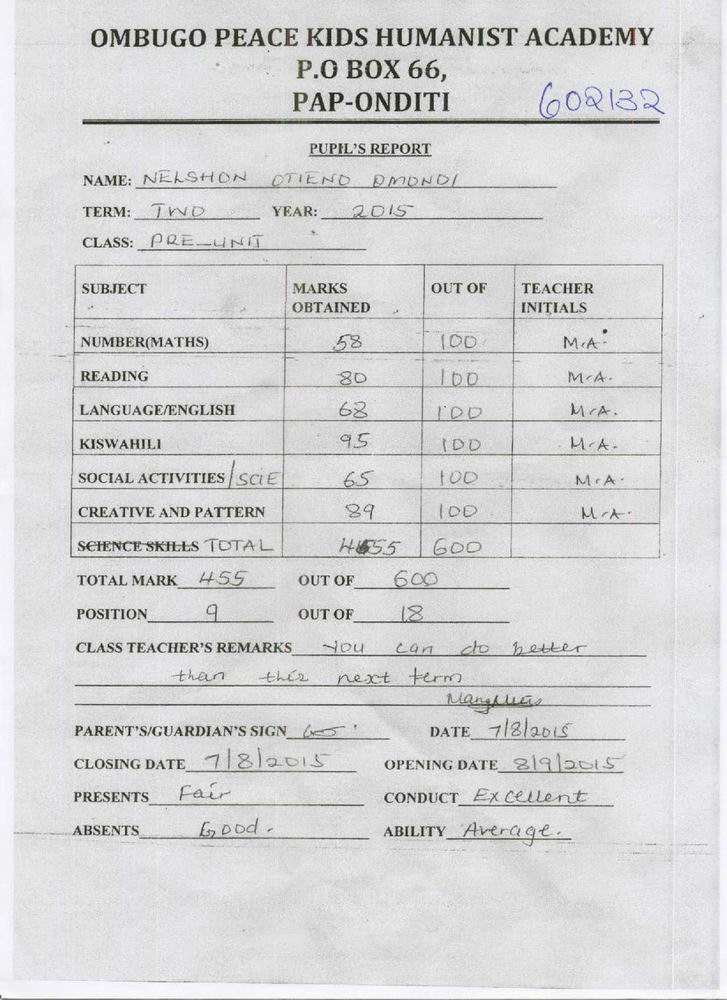 OMBUGO PEACE KIDS HUMANIST ACADEMY
P.O BOX 66,
PAP-ONDITI 602132
PUPIL'S REPORT
NAME: NELSHON OTIENO OMONDI
TERM: TWO YEAR: 2015
CLASS: PRE-UNIT
SUBJECT MARKS OBTAINED OUT OF TEACHER INITIALS
NUMBER(MATHS) 58 100 M.A.
READING 80 100 M.A.
LANGUAGE/ENGLISH 68 100 M.A.
KISWAHILI 95 100 M.A.
SOCIAL ACTIVITIES/SCIE 65 100 M.A.
CREATIVE AND PATTERN 89 100 M.A.
SCIENCE SKILLS TOTAL 455 600
TOTAL MARK 455 OUT OF 600
POSITION 9 OUT OF 18
CLASS TEACHER'S REMARKS You can do better
than this next term
PARENT'S/GUARDIAN'S SIGN DATE 7/8/2015
CLOSING DATE 7/8/2015 OPENING DATE 8/9/2015
PRESENTS Fair CONDUCT Excellent
ABSENTS Good. ABILITY Average.